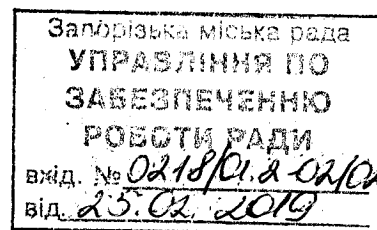 Запорізька міська рада
УПРАВЛІННЯ ПО
ЗАБЕЗПЕЧЕННЮ
РОБОТИ РАДИ
вхід. № 0218/01.2-02/02
від 25.02. 2019